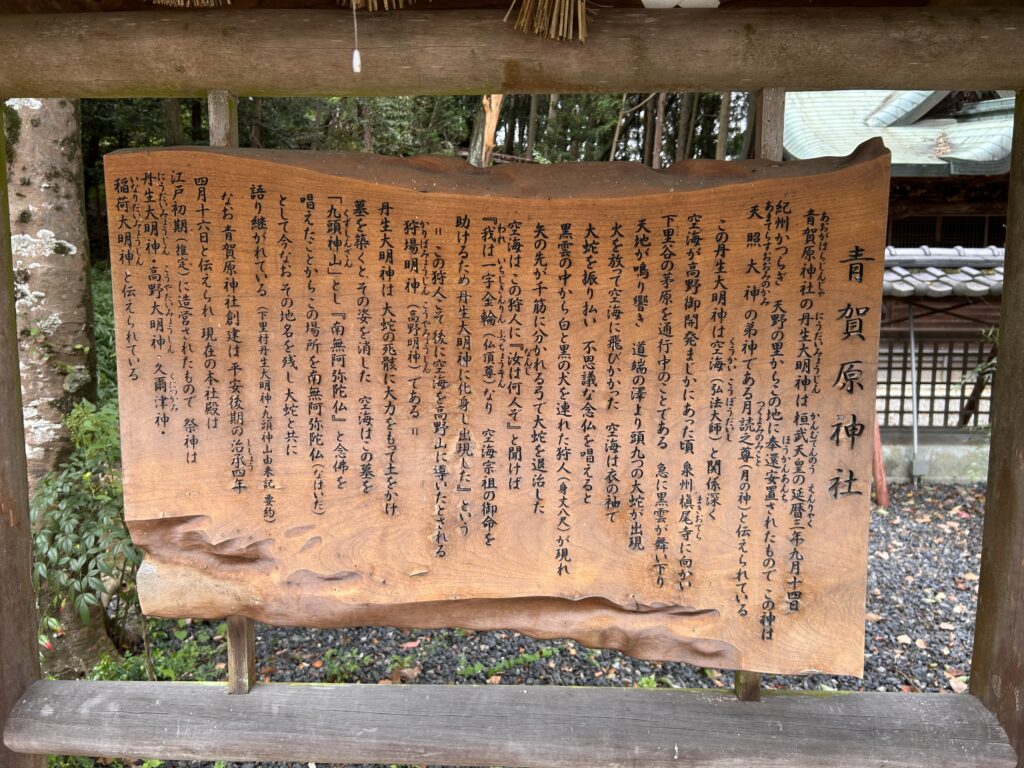 青賀原神社
青賀原神社の丹生大明神は桓武天皇の延暦三年九月十四日
紀州かつらぎ 天野の里からこの地に奉遷安置されたもので この神は
天照大神の弟神である月読之尊(月の神)と伝えられている
この丹生大明神は空海(弘法大師)と関係深く
空海が高野御開発まじかにあった頃 泉州槇尾寺に向かい
下里谷の茅原を通行中のことである 急に黒雲が舞い下り
天地が鳴り響き 道端の澤より頭九つの大蛇が出現
火を放って空海に飛びかかった 空海は衣の袖で
大蛇を振り払い 不思議な念仏を唱えると
黒雲の中から白と黒の犬を連れた狩人(身丈八尺)が現れ
矢の先が千筋に分かれる弓で大蛇を退治した
空海はこの狩人に『汝は何人ぞ』と聞けば
『我は一字金輪(仏頂尊)なり 空海宗祖の御命を
助けるため 丹生大明神に化身し出現した』という
=この狩人こそ 後に空海を高野山に導いたとされる
狩場明神(高野明神)である=
丹生大明神は 大蛇の死骸に大力をもって土をかけ
墓を築くと、その姿を消した 空海は、この墓を
「九頭神山」とし『南無阿弥陀仏』と念佛を
唱えたことから この場所を南無阿弥陀仏(なはいた)
として今なお その地名を残し 大蛇と共に
語り継がれている (下里村丹生大明神九頭神山由来記 要約)
なお 青賀原神社創建は 平安後期の治承四年
四月十六日と伝えられ 現在の本社殿は
江戸初期(推定)に造営されたもので 祭神は
丹生大明神・高野大明神・久爾津神・
稲荷大明神 と伝えられている